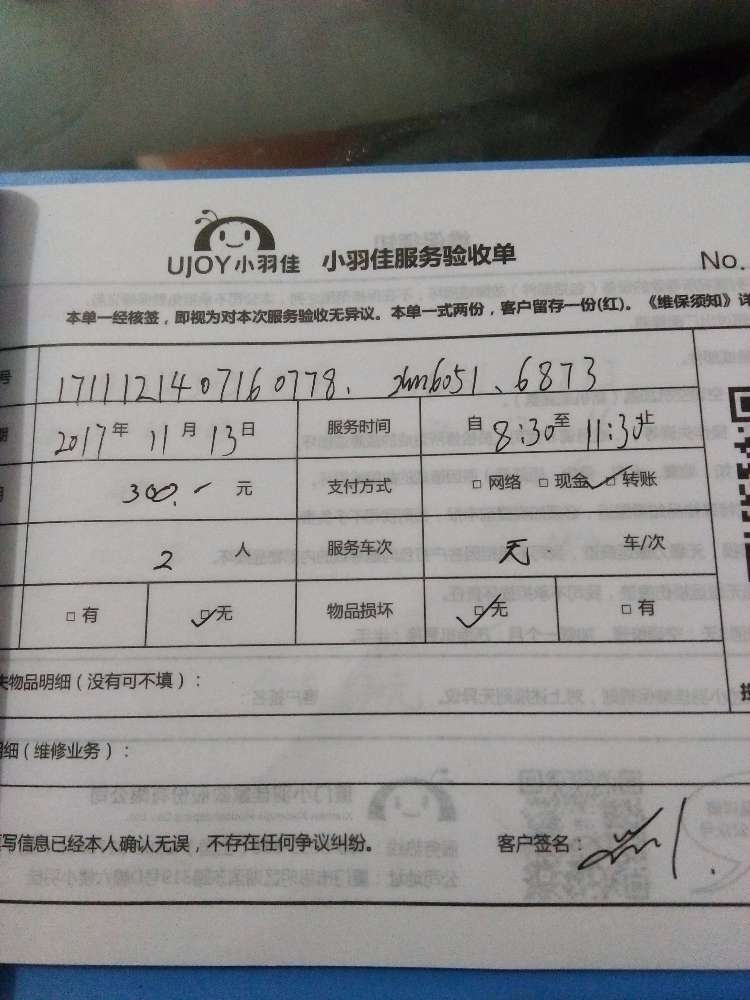 UJOY小羽佳 小羽佳服务验收单
No.
本单一经核签，即视为对本次服务验收无异议。本单一式两份，客户留存一份(红)。《维保须知》详
号 1711121407160778. xhm6051、6873
期 2017年 11月 13日 服务时间 自 8:30 至 11:30 止
300.- 元 支付方式 □ 网络 □ 现金 ☑ 转账
2 人 服务车次 无 车/次
□ 有 ☑ 无 物品损坏 ☑ 无 □ 有
失物品明细（没有可不填）：
明细（维修业务）：
填写信息已经本人确认无误，不存在任何争议纠纷。 客户签名：